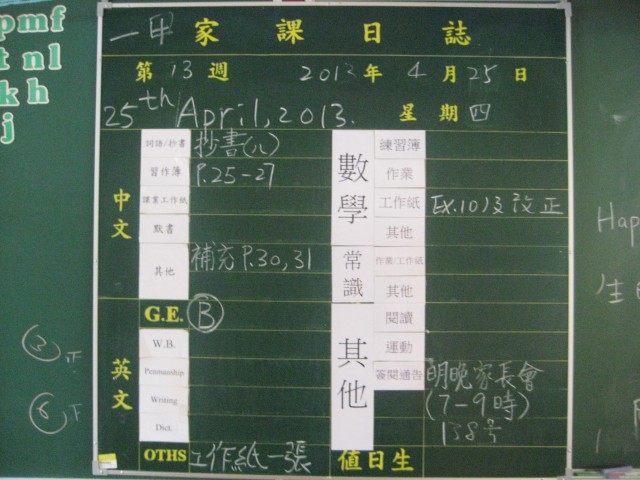 pmf
t nl
k h
j
一甲 家課日誌
第 13 週 2013 年 4 月 25 日
25th April, 2013. 星期四
中文
詞語/抄書 抄書(八)
習作簿 P.25-27
課業工作紙
默書
其他 補充 P.30, 31
英文
G.E. B
W.B.
Penmanship
Writing
Dict.
OTHS 工作紙一張
數學
練習簿
作業
工作紙 Ex.10及改正
其他
常識
作業/工作紙
其他
其他
閱讀
運動
簽閱通告 明晚家長會
(7-9時)
138號
值日生
Hap
生